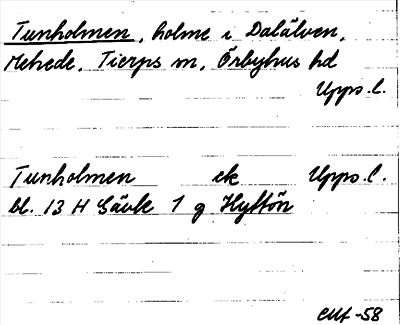 Tunholmen, holme i Dalälven,
Mehede, Tierps sn, Örbyhus hd
Upps. l.
Tunholmen ek Upps. l.
bl. 13 H Gävle 1 g Hyttön
-58